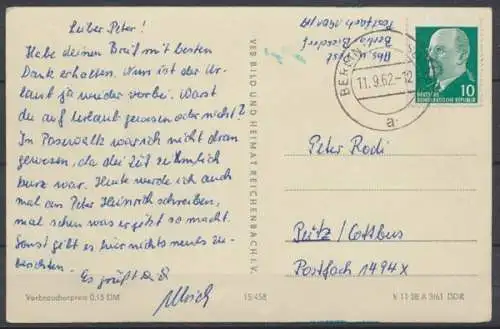 Lieber Peter!
Habe deinen Brief mit besten
Dank erhalten. Nun ist der Ur-
laub ja wieder vorbei. Warst
du auf Urlaub gewesen oder nicht?
In Pasewalk war ich nicht dran
gewesen, da die Zeit ziemlich
kurz war. Heute werde ich auch
mal an Peter Heinrich schreiben,
mal sehen was er jetzt so macht.
Sonst gibt es hier nichts neues zu
berichten.
Es grüßt Dich
Ulrich
Verbraucherpreis 0,15 DM
15 458
VEB BILD UND HEIMAT REICHENBACH I. V.
Berlin Biesdorf
Postfach
BERLIN
11.9.62-12
a
DEUTSCHE
DEMOKRATISCHE REPUBLIK
10
Peter Rodi
Peitz/Cottbus
Postfach 1494x
V 11 28 A 3/61 DDR